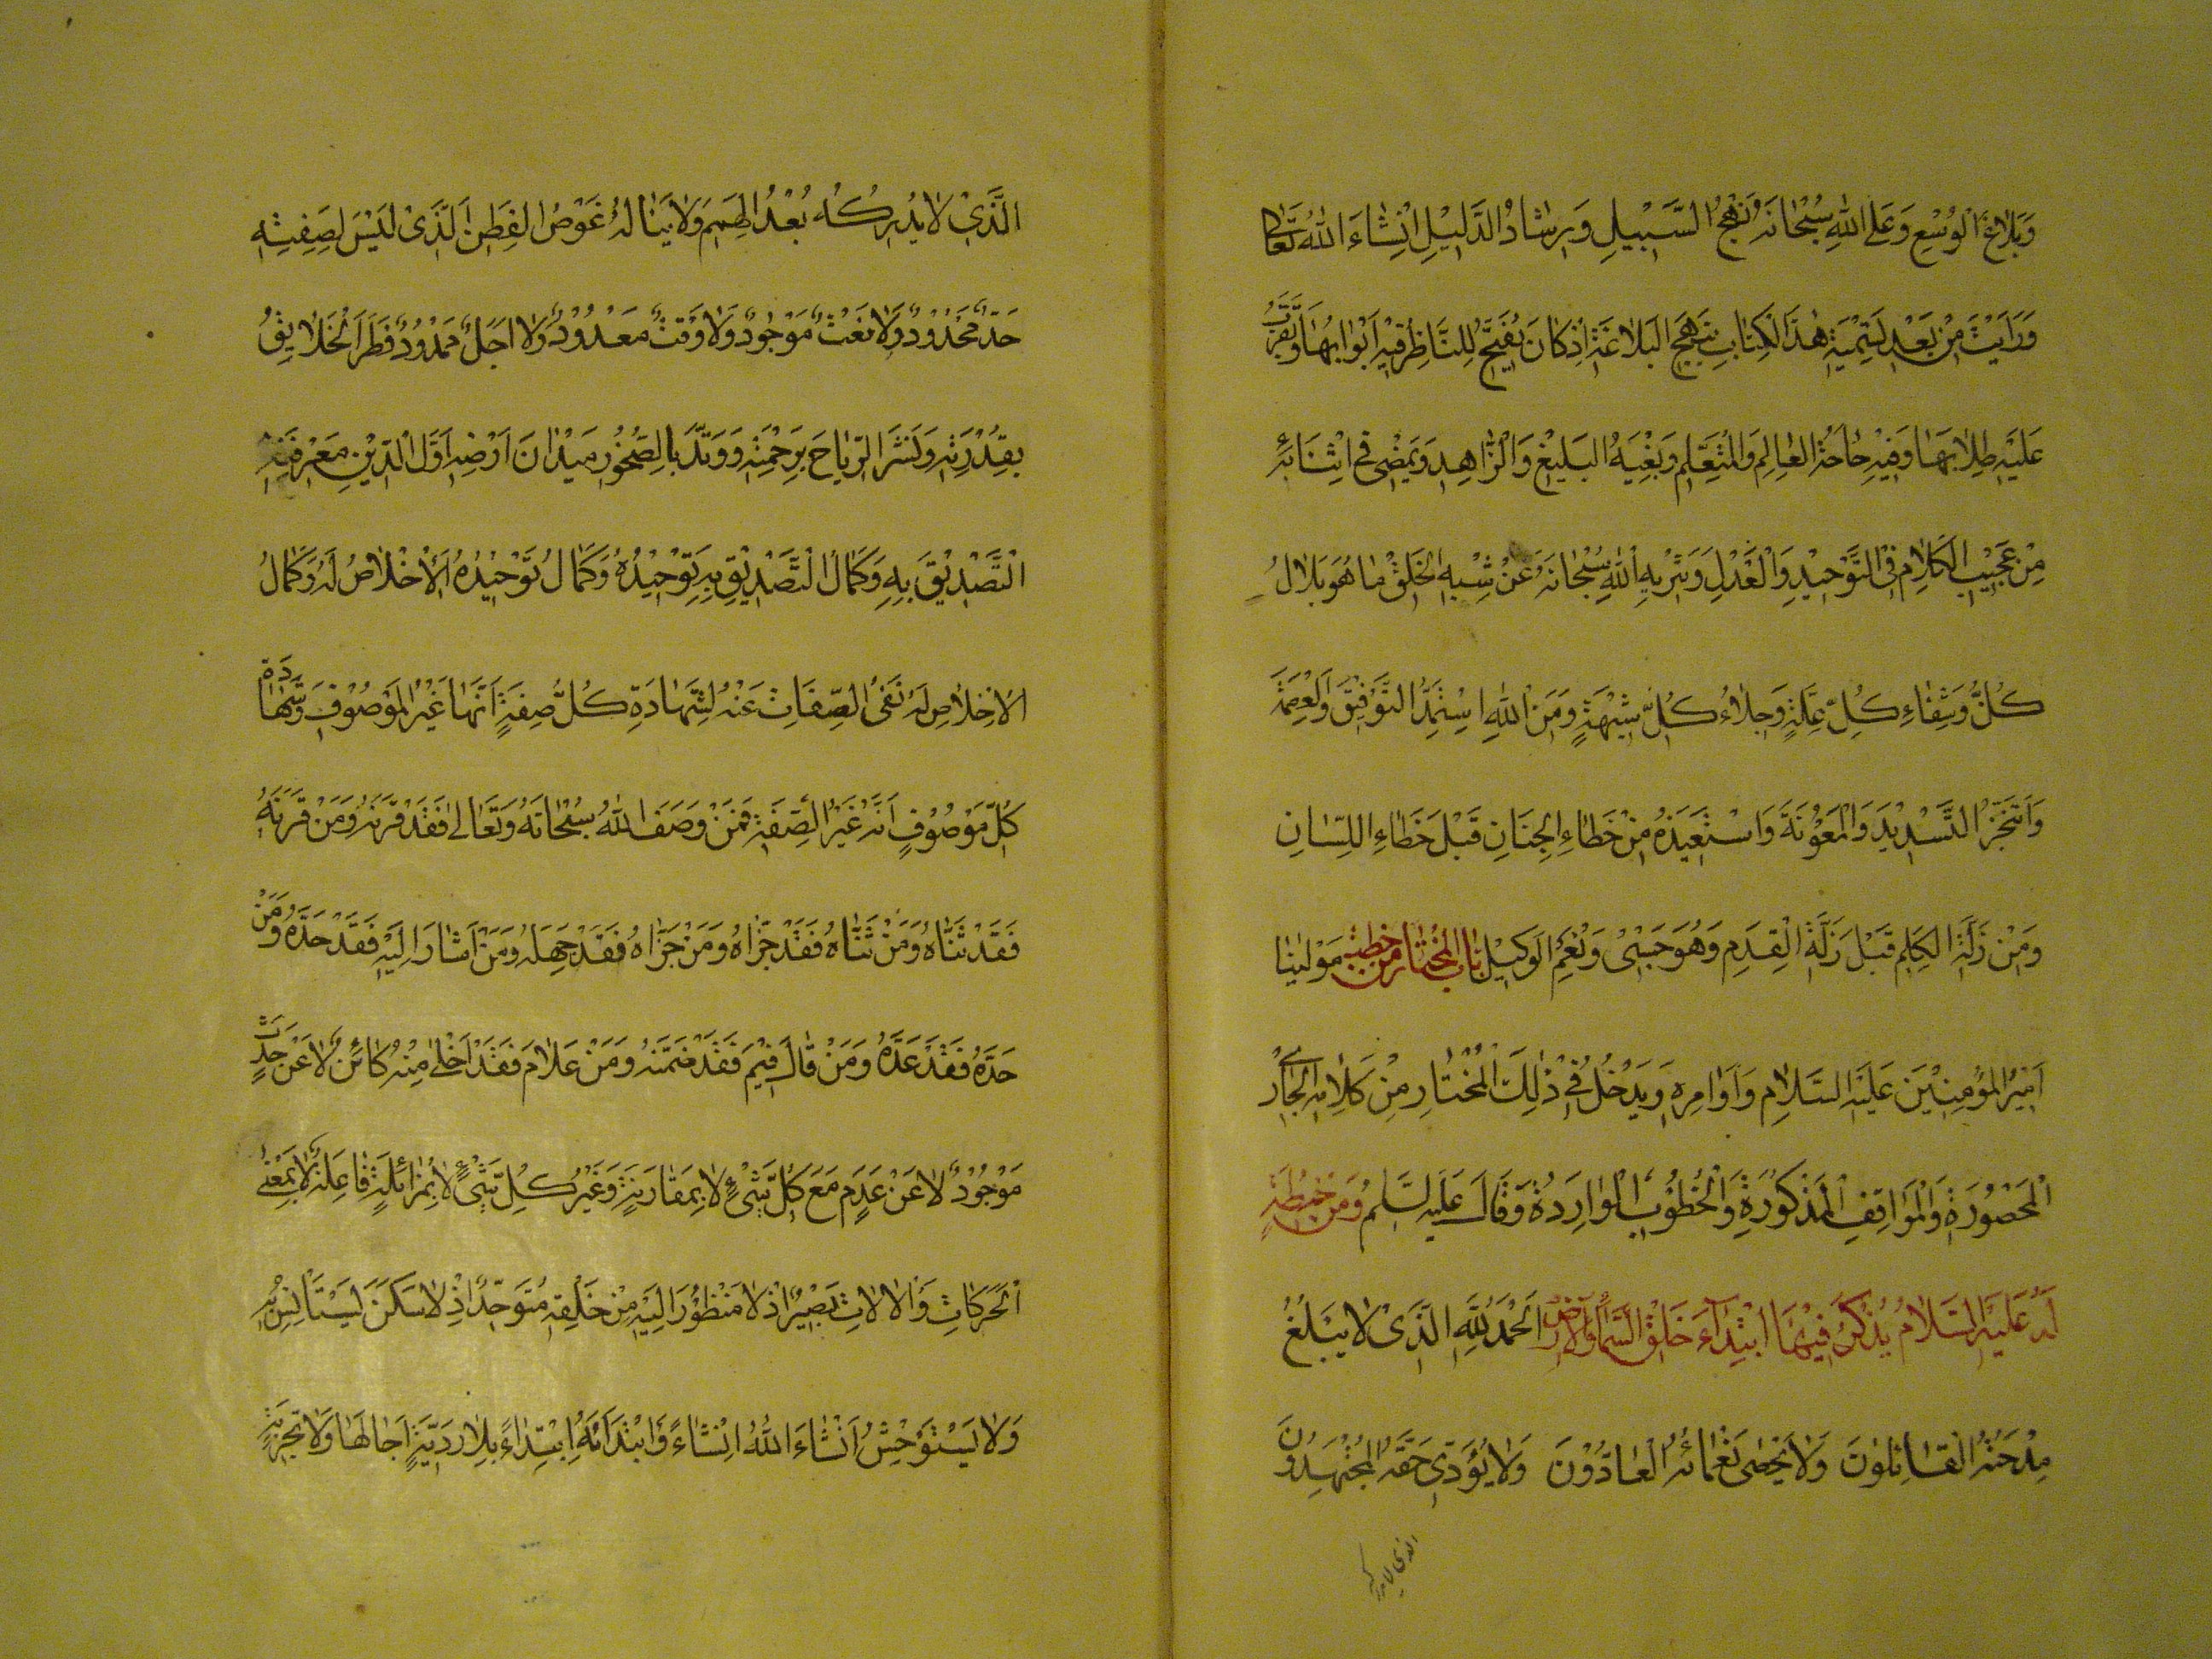 وَبَلَاغَ الْوُسْعِ وَعَلَى اللهِ سُبْحَانَهُ نَهْجُ السَّبِيْلِ وَرِشَادُ الدَّلِيْلِ اِنْشَاءَ اللهُ تَعَالٰى
وَرَاَيْتُ مِنْ بَعْدِ تَسْمِيَةِ هٰذَا الْكِتَابِ بِنَهْجِ الْبَلَاغَةِ اِذْ كَانَ يُفَتِّحُ لِلنَّاظِرِ فِيْهِ اَبْوَابَهَا وَيُقَرِّبُ
عَلَيْهِ طِلَابَهَا وَفِيْهِ حَاجَةُ الْعَالِمِ وَالْمُتَعَلِّمِ وَبُغْيَةُ الْبَلِيْغِ وَالزَّاهِدِ وَيَمْضِى فِى اَثْنَائِهِ
مِنْ عَجِيْبِ الْكَلَامِ فِى التَّوْحِيْدِ وَالْعَدْلِ وَتَنْزِيْهِ اللهِ سُبْحَانَهُ عَنْ شِبْهِ الْخَلْقِ مَا هُوَ بِلَالُ
كُلِّ وَشِفَاءِ كُلِّ عِلَّةٍ وَجَلَاءُ كُلِّ شُبْهَةٍ وَمِنَ اللهِ اسْتَمِدُّ التَّوْفِيْقَ وَالْعِصْمَةَ
وَاَتَنَجَّزُ التَّسْدِيْدَ وَالْمَعُوْنَةَ وَاسْتَعِيْذُهُ مِنْ خَطَاءِ الْجِنَانِ قَبْلَ خَطَاءِ اللِّسَانِ
وَمِنْ زَلَّةِ الْكَلِمِ قَبْلَ زَلَّةِ الْقِدَمِ وَهُوَ حَسْبِىْ وَنِعْمَ الْوَكِيْلُ بَابُ الْمُخْتَارِ مِنْ خُطَبِ مَوْلٰينَا
اَمِيْرِ الْمُؤْمِنِيْنَ عَلَيْهِ السَّلَامِ وَاَوَامِرِهِ وَيَدْخُلُ فِىْ ذٰلِكَ الْمُخْتَارِ مِنْ كَلَامِهِ الْجَارِىْ
الْمَحْصُوْرَةِ وَالْمَوَاقِفِ الْمَذْكُوْرَةِ وَالْخُطُوْبِ الْوَارِدَةِ وَقَالَ عَلَيْهِ السَّلٰمِ وَمِنْ خُطْبَةٍ
لَهُ عَلَيْهِ السَّلَامُ يُذْكَرُ فِيْهَا ابْتِدَاءَ خَلْقِ السَّمَاءِ وَالْاَرْضِ اَلْحَمْدُ لِلّٰهِ الَّذِىْ لَا يَبْلُغُ
مِدْحَتَهُ الْقَائِلُوْنَ وَلَا يُحْصِى نَعْمَائَهُ الْعَادُّوْنَ وَلَا يُؤَدِّىْ حَقَّهُ الْمُجْتَهِدُوْنَ
الذى لا يدركه
الَّذِىْ لَا يُدْرِكُهُ بُعْدُ الْهِمَمِ وَلَا يَنَالُهُ غَوْصُ الْفِطَنِ الَّذِىْ لَيْسَ لِصِفَتِهِ
حَدٌّ مَحْدُوْدٌ وَلَا نَعْتٌ مَوْجُوْدٌ وَلَا وَقْتٌ مَعْدُوْدٌ وَلَا اَجَلٌ مَمْدُوْدٌ فَطَرَ الْخَلَايِقَ
بِقُدْرَتِهِ وَنَشَرَ الرِّيَاحَ بِرَحْمَتِهِ وَوَتَّدَ بِالصُّخُوْرِ مَيْدَانَ اَرْضِهِ اَوَّلُ الدِّيْنِ مَعْرِفَتُهُ
التَّصْدِيْقُ بِهِ وَكَمَالُ التَّصْدِيْقِ بِهِ تَوْحِيْدُهُ وَكَمَالُ تَوْحِيْدُهُ اَلْاِخْلَاصُ لَهُ وَكَمَالُ
الْاِخْلَاصِ لَهُ نَفْىُ الصِّفَاتِ عَنْهُ لِشَهَادَةِ كُلِّ صِفَةٍ اَنَّهَا غَيْرُ الْمَوْصُوْفِ وَشَهَادَةِ
كُلِّ مَوْصُوْفٍ اَنَّهُ غَيْرُ الصِّفَةِ فَمَنْ وَصَفَ اللهَ سُبْحَانَهُ وَتَعَالٰى فَقَدْ قَرَنَهُ وَمَنْ قَرَنَهُ
فَقَدْ ثَنَّاهُ وَمَنْ ثَنَّاهُ فَقَدْ جَزَّاهُ وَمَنْ جَزَّاهُ فَقَدْ جَهِلَهُ وَمَنْ اَشَارَ اِلَيْهِ فَقَدْ حَدَّهُ وَمَنْ
حَدَّهُ فَقَدْ عَدَّهُ وَمَنْ قَالَ فِيْمَ فَقَدْ ضَمَّنَهُ وَمَنْ عَلَامَ فَقَدْ اَخْلٰى مِنْهُ كَائِنٌ لَا عَنْ حَدَثٍ
مَوْجُوْدٌ لَا عَنْ عَدَمٍ مَعَ كُلِّ شَىْءٍ لَا بِمُقَارَنَةٍ وَغَيْرُ كُلِّ شَىْءٍ لَا بِمُزَائَلَةٍ فَاعِلٌ لَا بِمَعْنٰى
الْحَرَكَاتِ وَالْالَاتِ بَصِيْرٌ اِذْ لَا مَنْظُوْرَ اِلَيْهِ مِنْ خَلْقِهِ مُتَوَحِّدٌ اِذْ لَا سَكَنَ يَسْتَاْنِسُ بِهِ
وَلَا يَسْتَوْحِشُ اَنْشَاءَ اللهُ اِنْشَاءً وَابْتَدَاَهُ اِبْتِدَاءً بِلَا رَوِيَّةٍ اَجَالَهَا وَلَا تَجْرِبَةٍ